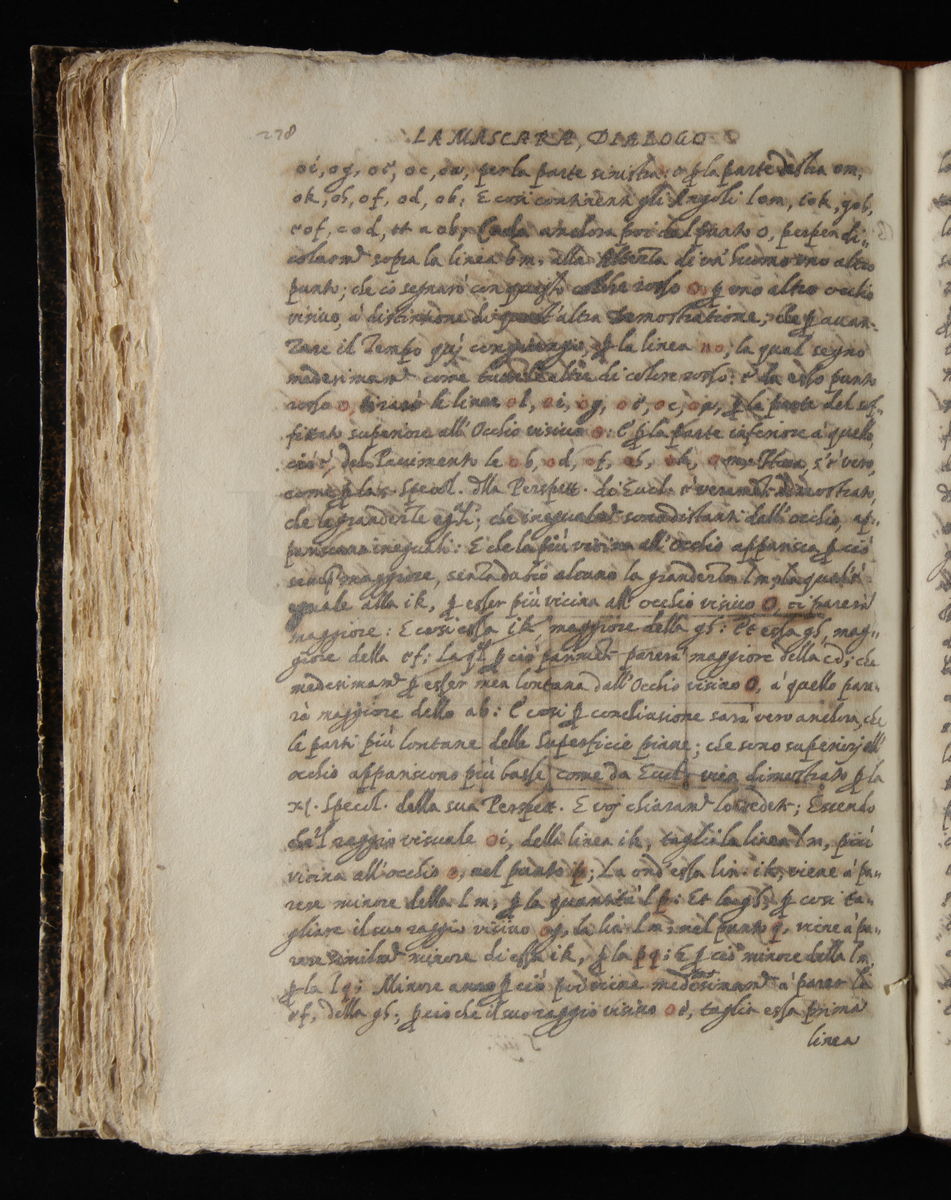 278
LA MASCARA, DIALOGO
oi, og, oe, oc, oa, per la parte sinistra: e ꝑ la parte destra om,
ok, oh, of, od, ob; E così continenti gli Angoli lom, iok, goh,
eof, cod, et aob; Cada anchora poi dal punto o, perpendi=
colarm.te sopra la linea bm, alla Altezza di un huomo uno altro
punto; che io segnarò con questo colore rosso o, ꝑ uno altro occhio
visivo, a distintione di quest'altra Demostratione, che ꝑ avan-
zare il Tempo quj congiungo, ꝑ la linea no, la qual segno
medesimam.te come tutte le altre di colore rosso: e da esso punto
rosso o, tirarò le linee ol, oi, og, oe, oc, oa, ꝑ la parte del sof=
fittato superiore all'Occhio visivo o: E ꝑ la parte inferiore a quello
cio è, del Pavimento le ob, od, of, oh, ok, om. Hora, s'è vero,
come ꝑ la 5. Specol. della Perspett. di Eucl. è veramt.e demostrato,
che le grandezze eq.li; che inequalm.te sono distanti dall'occhio, ap=
pariscano ineguali: E che la più vicina all'Occhio apparisca ꝑ ciò
semp. maggiore, senza dubio alcuno la grandezza lm, la qual è
equale alla ik, ꝑ esser più vicina all'occhio visivo o, ci parerà
maggiore: E così essa ik, maggiore della gh: Et essa gh, mag=
giore della ef: La q.l ꝑ ciò parimente parerà maggiore della cd; che
medesimam.te ꝑ esser men lontana dall'Occhio visivo o, a quello pare=
rà maggiore dello ab: E così ꝑ conclusione sarà vero anchora, che
le parti più lontane delle superficie piane; che sono superiorj all'
occhio appariscono più basse, come da Eucl. vien dimostrato ꝑ la
xj. Specul. della sua Perspett. E voj chiaram.te lo vedete; Essendo
che'l raggio visuale oi, della linea ik, taglia la linea lm, più
vicina all'occhio o, nel punto p; La ond'essa lin. ik, viene a pa=
rere minore della lm, ꝑ la quantità lp: Et la gh, ꝑ così ta=
gliare il suo raggio visivo og, la lin. lm, nel punto q, viene a pa=
rere similm.te minore di essa ik, ꝑ la pq: E ꝑ ciò minore della lm,
ꝑ la lq: Minore anco ꝑ ciò poi viene medesimam.te a parer la
ef, della gh; ꝑ cio che il suo raggio visivo oe, taglia essa prima
linea